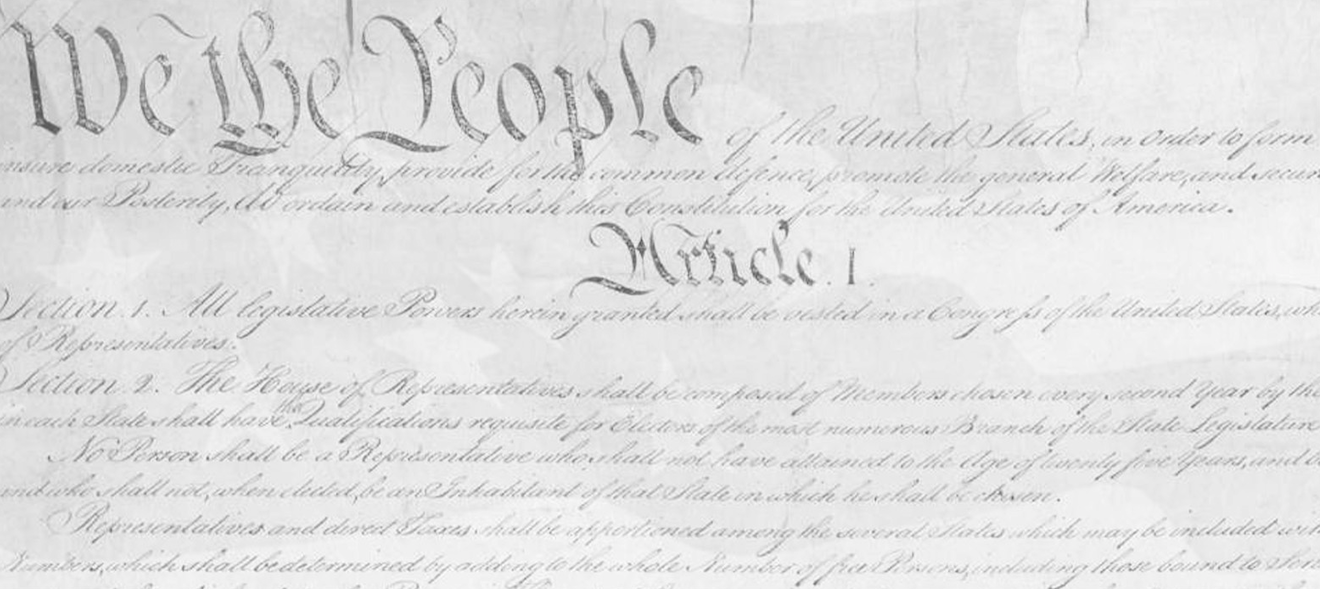 We the People of the United States, in Order to form
insure domestic Tranquility, provide for the common defence, promote the general Welfare, and secur
and our Posterity, do ordain and establish this Constitution for the United States of America.
Article. I.
Section. 1. All legislative Powers herein granted shall be vested in a Congress of the United States, wh
of Representatives.
Section. 2. The House of Representatives shall be composed of Members chosen every second Year by the
in each State shall have the Qualifications requisite for Electors of the most numerous Branch of the State Legislature
No Person shall be a Representative who shall not have attained to the Age of twenty five Years, and b
and who shall not, when elected, be an Inhabitant of that State in which he shall be chosen.
Representatives and direct Taxes shall be apportioned among the several States which may be included wit
Numbers, which shall be determined by adding to the whole Number of free Persons, including those bound to Serv